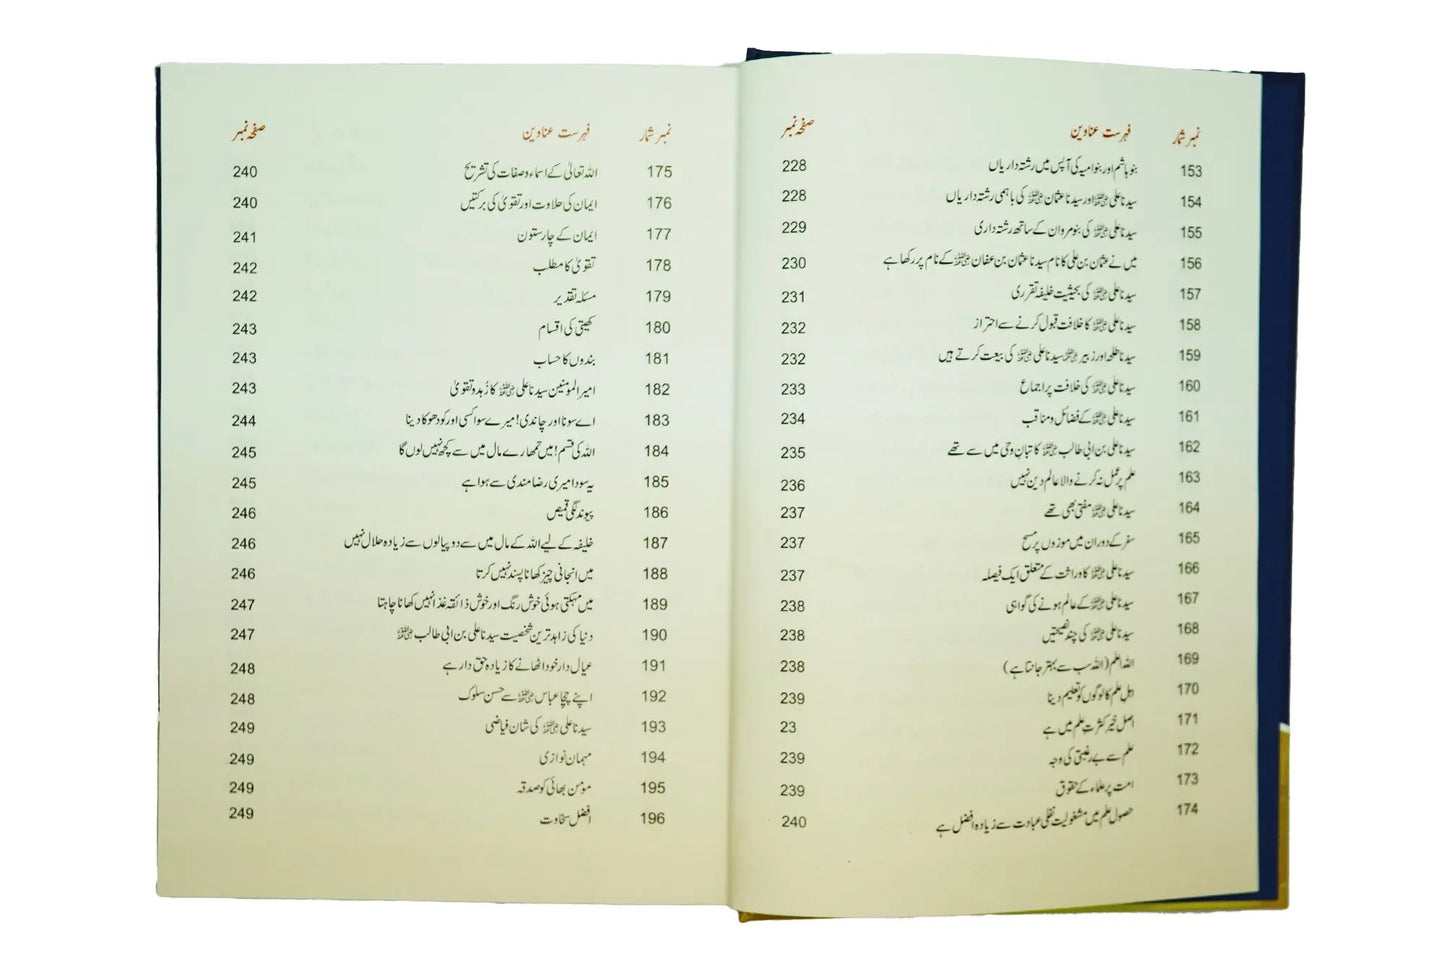 نمبر شمار فہرست عناوین صفحہ نمبر
153 بنو ہاشم اور بنو امیہ کی آپس میں رشتہ داریاں 228
154 سیدنا علی رضی اللہ عنہ اور سیدنا عثمان رضی اللہ عنہ کی باہمی رشتہ داریاں 228
155 سیدنا علی رضی اللہ عنہ کی بنو مروان کے ساتھ رشتہ داری 229
156 میں نے عثمان بن علی کا نام سیدنا عثمان بن عفان رضی اللہ عنہ کے نام پر رکھا ہے 230
157 سیدنا علی رضی اللہ عنہ کی بحیثیت خلیفہ تقرری 231
158 سیدنا علی رضی اللہ عنہ کا خلافت قبول کرنے سے احتراز 232
159 سیدنا طلحہ اور زبیر رضی اللہ عنہ سیدنا علی رضی اللہ عنہ کی بیعت کرتے ہیں 232
160 سیدنا علی رضی اللہ عنہ کی خلافت پر اجماع 233
161 سیدنا علی رضی اللہ عنہ کے فضائل و مناقب 234
162 سیدنا علی بن ابی طالب رضی اللہ عنہ کاتبانِ وحی میں سے تھے 235
163 علم پر عمل نہ کرنے والا عالم دین نہیں 236
164 سیدنا علی رضی اللہ عنہ مفتی بھی تھے 237
165 سفر کے دوران میں موزوں پر مسح 237
166 سیدنا علی رضی اللہ عنہ کا وراثت کے متعلق ایک فیصلہ 237
167 سیدنا علی رضی اللہ عنہ کے عالم ہونے کی گواہی 238
168 سیدنا علی رضی اللہ عنہ کی چند نصیحتیں 238
169 اللہ اعلم (اللہ سب سے بہتر جانتا ہے) 238
170 اہلِ علم کا لوگوں کو تعلیم دینا 239
171 اصل خیر کثرتِ علم میں ہے 23
172 علم سے بے رغبتی کی وجہ 239
173 امت پر علماء کے حقوق 239
174 حصول علم میں مشغولیت نفلی عبادت سے زیادہ افضل ہے 240
نمبر شمار فہرست عناوین صفحہ نمبر
175 اللہ تعالیٰ کے اسماء و صفات کی تشریح 240
176 ایمان کی حلاوت اور تقویٰ کی برکتیں 240
177 ایمان کے چار ستون 241
178 تقویٰ کا مطلب 242
179 مسئلہ تقدیر 242
180 کھیتی کی اقسام 243
181 بندوں کا حساب 243
182 امیر المومنین سیدنا علی رضی اللہ عنہ کا زُہد و تقویٰ 243
183 اے سونا اور چاندی! میرے سوا کسی اور کو دھوکا دینا 244
184 اللہ کی قسم! میں تمھارے مال میں سے کچھ نہیں لوں گا 245
185 یہ سودا میری رضا مندی سے ہوا ہے 245
186 پیوند لگی قمیص 246
187 خلیفہ کے لیے اللہ کے مال میں سے دو پیالوں سے زیادہ حلال نہیں 246
188 میں انجانی چیز کھانا پسند نہیں کرتا 246
189 میں مہکتی ہوئی خوش رنگ اور خوش ذائقہ غذا نہیں کھانا چاہتا 247
190 دنیا کی زاہد ترین شخصیت سیدنا علی بن ابی طالب رضی اللہ عنہ 247
191 عیال دار خود اٹھانے کا زیادہ حق دار ہے 248
192 اپنے چچا عباس رضی اللہ عنہ سے حسن سلوک 248
193 سیدنا علی رضی اللہ عنہ کی شان فیاضی 249
194 مہمان نوازی 249
195 مومن بھائی کو صدقہ 249
196 افضل سخاوت 249